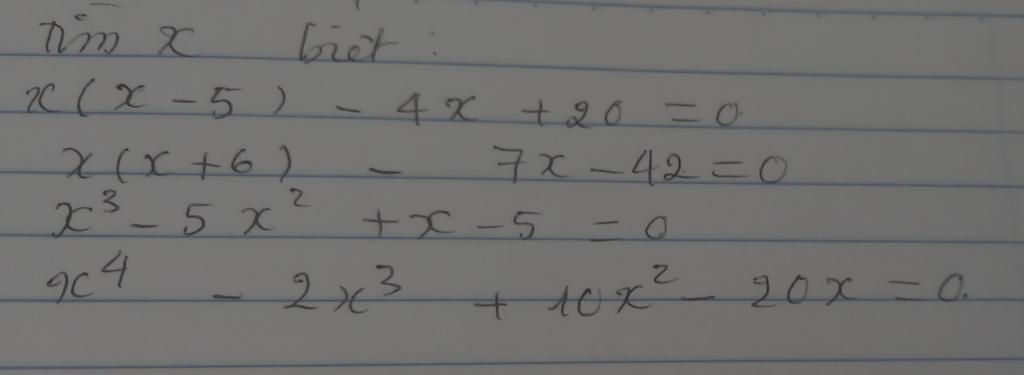 tìm x biết :
x(x - 5) - 4x + 20 = 0
x(x + 6) - 7x - 42 = 0
x³ - 5x² + x - 5 = 0
x⁴ - 2x³ + 10x² - 20x = 0.